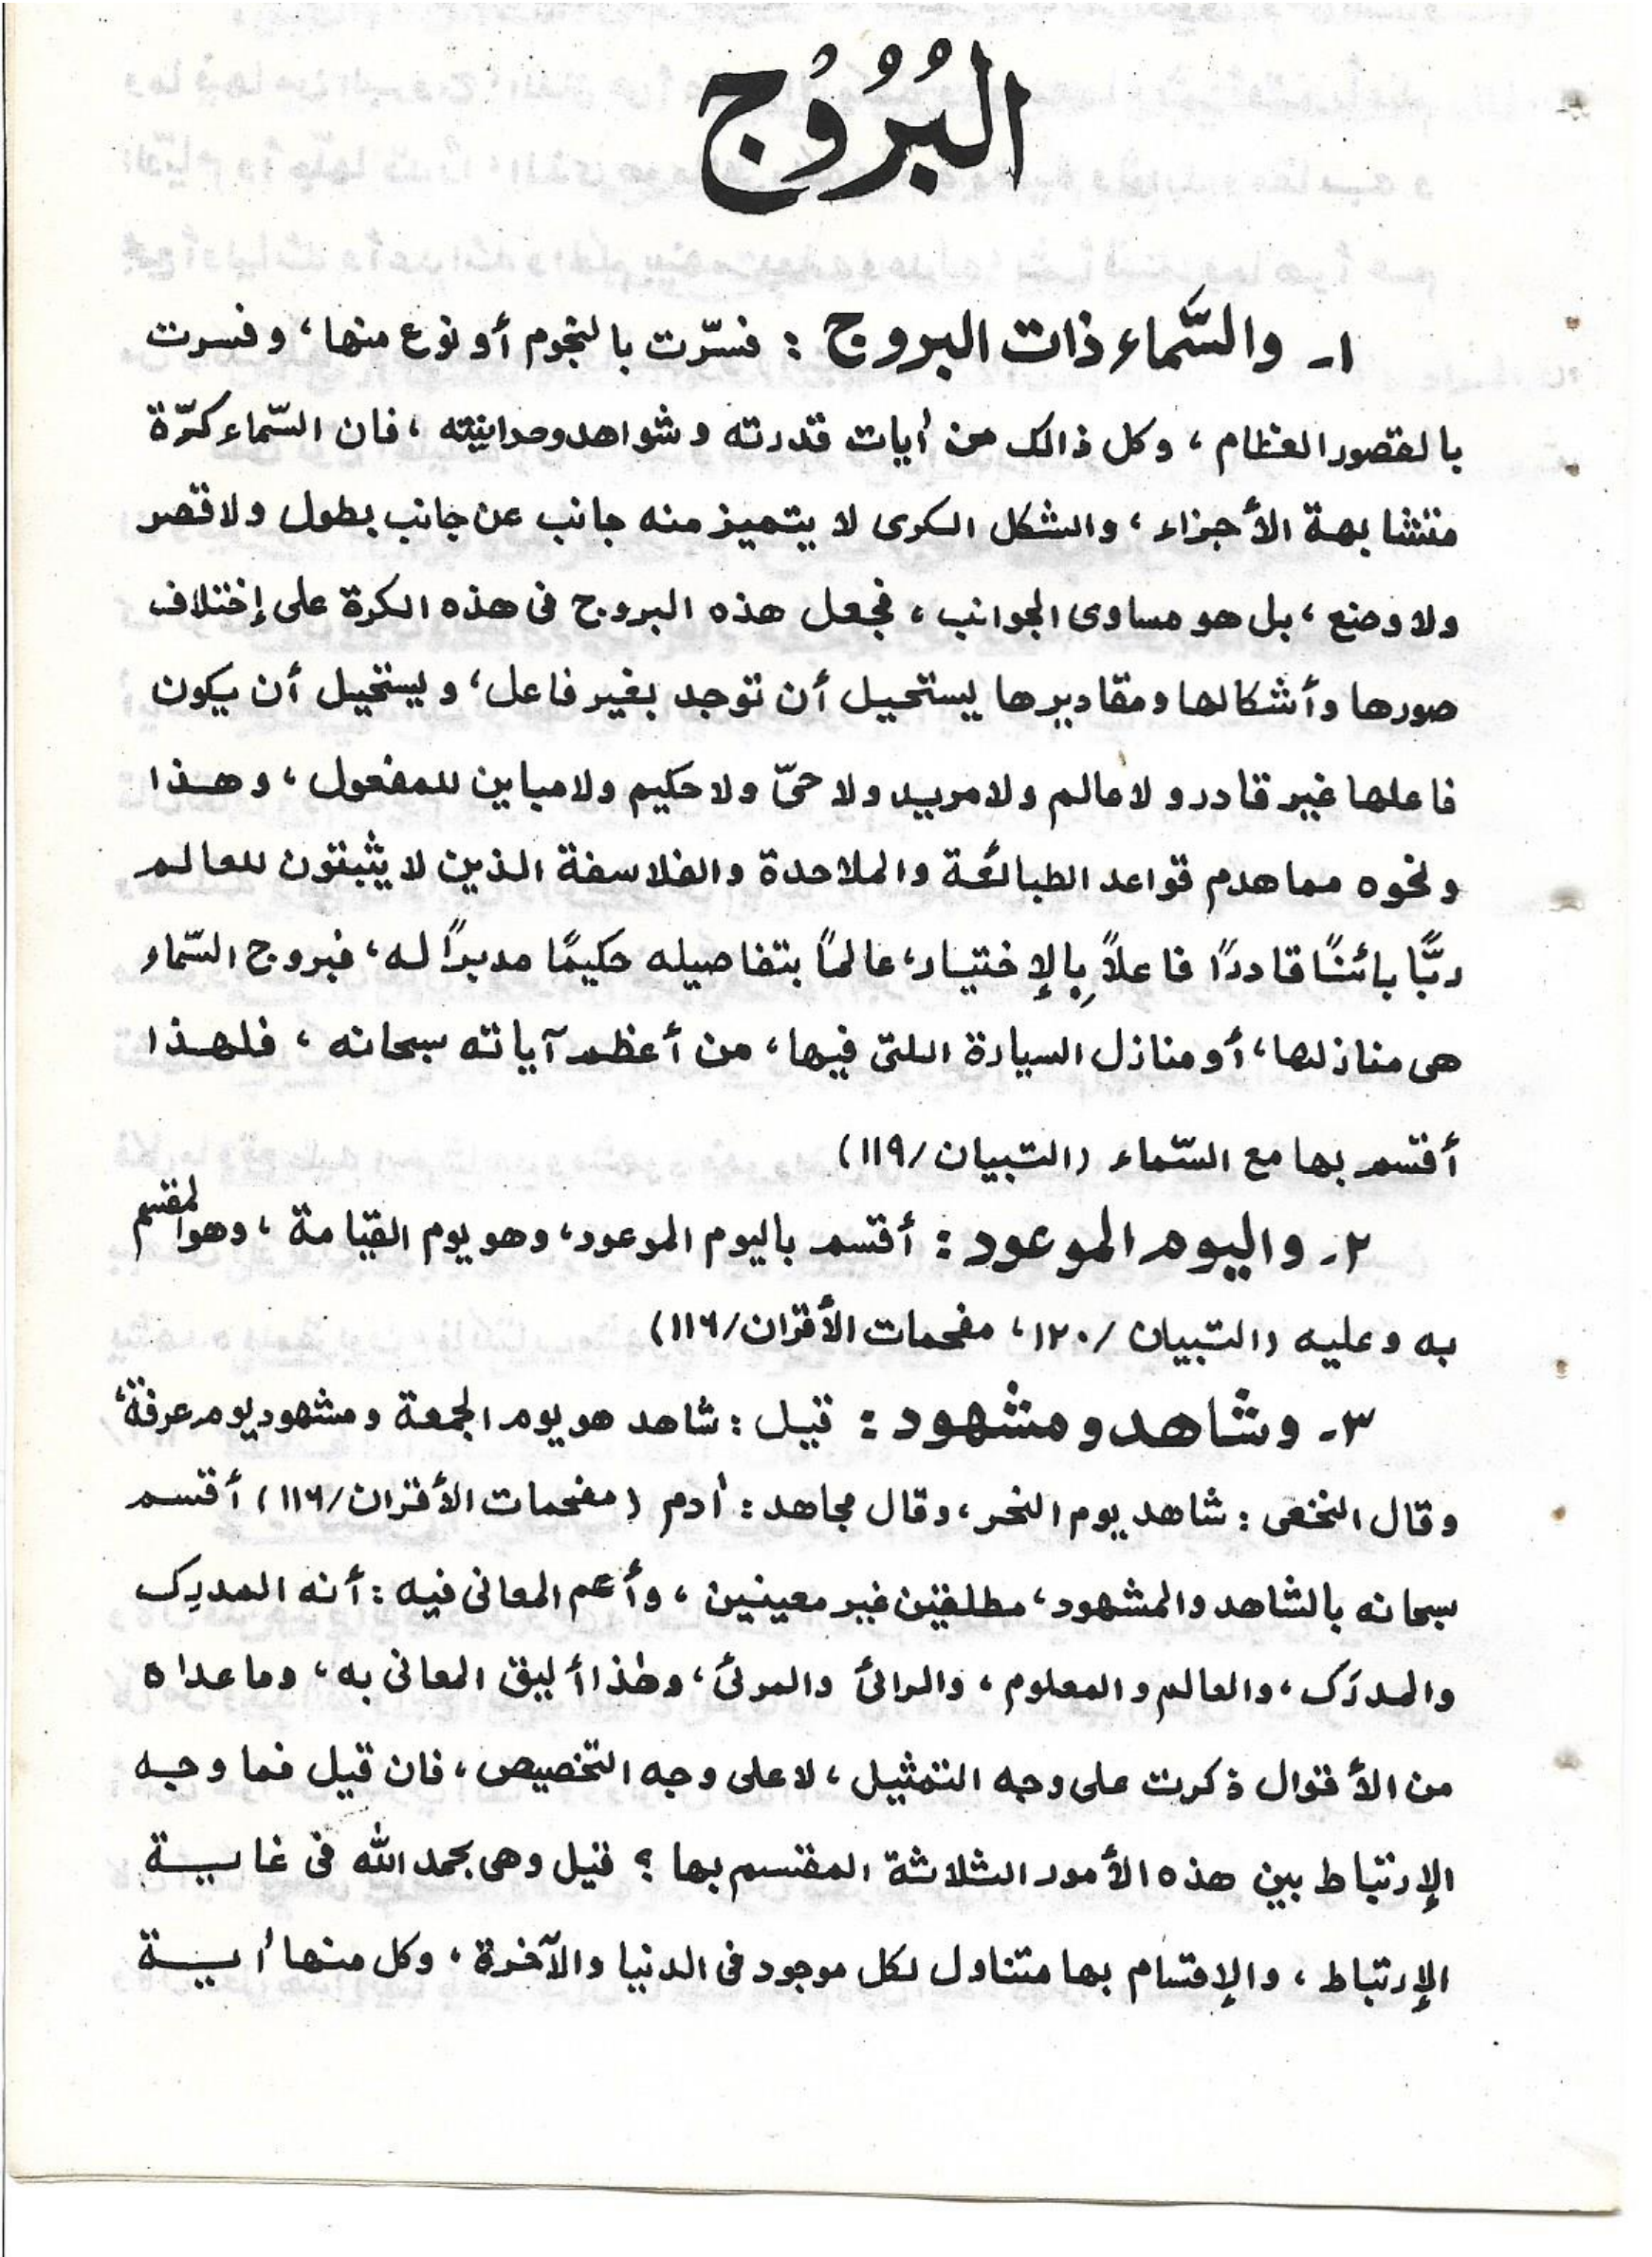 البُرُوُج
١ـ والسَّماء ذات البروج : فسّرت بالنجوم أو نوع منها، وفسرت
بالقصور العظام ، وكل ذالك من أيات قدرته و شواهد وحدانيته ، فان السّماء كرّة
متشابهة الأجزاء ، والشكل الكرى لا يتميز منه جانب عن جانب بطول ولا قصر
ولا وضع ، بل هو مساوى الجوانب ، فجعل هذه البروج فى هذه الكرة على إختلاف
صورها وأشكالها ومقاديرها يستحيل أن توجد بغير فاعل ، و يستحيل أن يكون
فاعلها غير قادر ولا عالم ولا مريد ولا حىّ ولا حكيم ولا مباين للمفعول ، وهذا
ونحوه مما هدم قواعد الطبائعة والملاحدة والفلاسفة الذين لا يثبتون للعالم
ربًّا بائنًا قادرًا فاعلاً بِالإختيار، عالمًا بتفاصيله حكيمًا مدبرًا له ، فبروج السّماء
هى منازلها ، أو منازل السيارة اللتى فيها ، من أعظم آياته سبحانه ، فلهذا
أقسم بها مع السّماء (التبيان/١١٩)
٢ـ واليوم الموعود : أقسم باليوم الموعود، وهو يوم القيامة ، وهو المقسم
به وعليه (التبيان /١٢٠، مفحمات الأقران/١١٦)
٣ـ وشاهد ومشهود : قيل : شاهد هو يوم الجمعة ومشهود يوم عرفة،
وقال النخعى : شاهد يوم النحر، وقال مجاهد : أدم (مفحمات الأقران/١١٦) أقسم
سبحانه بالشاهد والمشهود ، مطلقين غير معينين ، وأعم المعانى فيه : أنه المدرِك
والمدرَك ، والعالم والمعلوم ، والرائ والمرئ ، وهذا أليق المعانى به ، وما عداه
من الأقوال ذكرت على وجه التمثيل ، لا على وجه التخصيص ، فان قيل فما وجه
الإرتباط بين هذه الأمور الثلاثة المقسم بها ؟ قيل وهى بحمد الله فى غاية
الإرتباط ، والإقسام بها متناول لكل موجود فى الدنيا والآخرة ، وكل منها أية